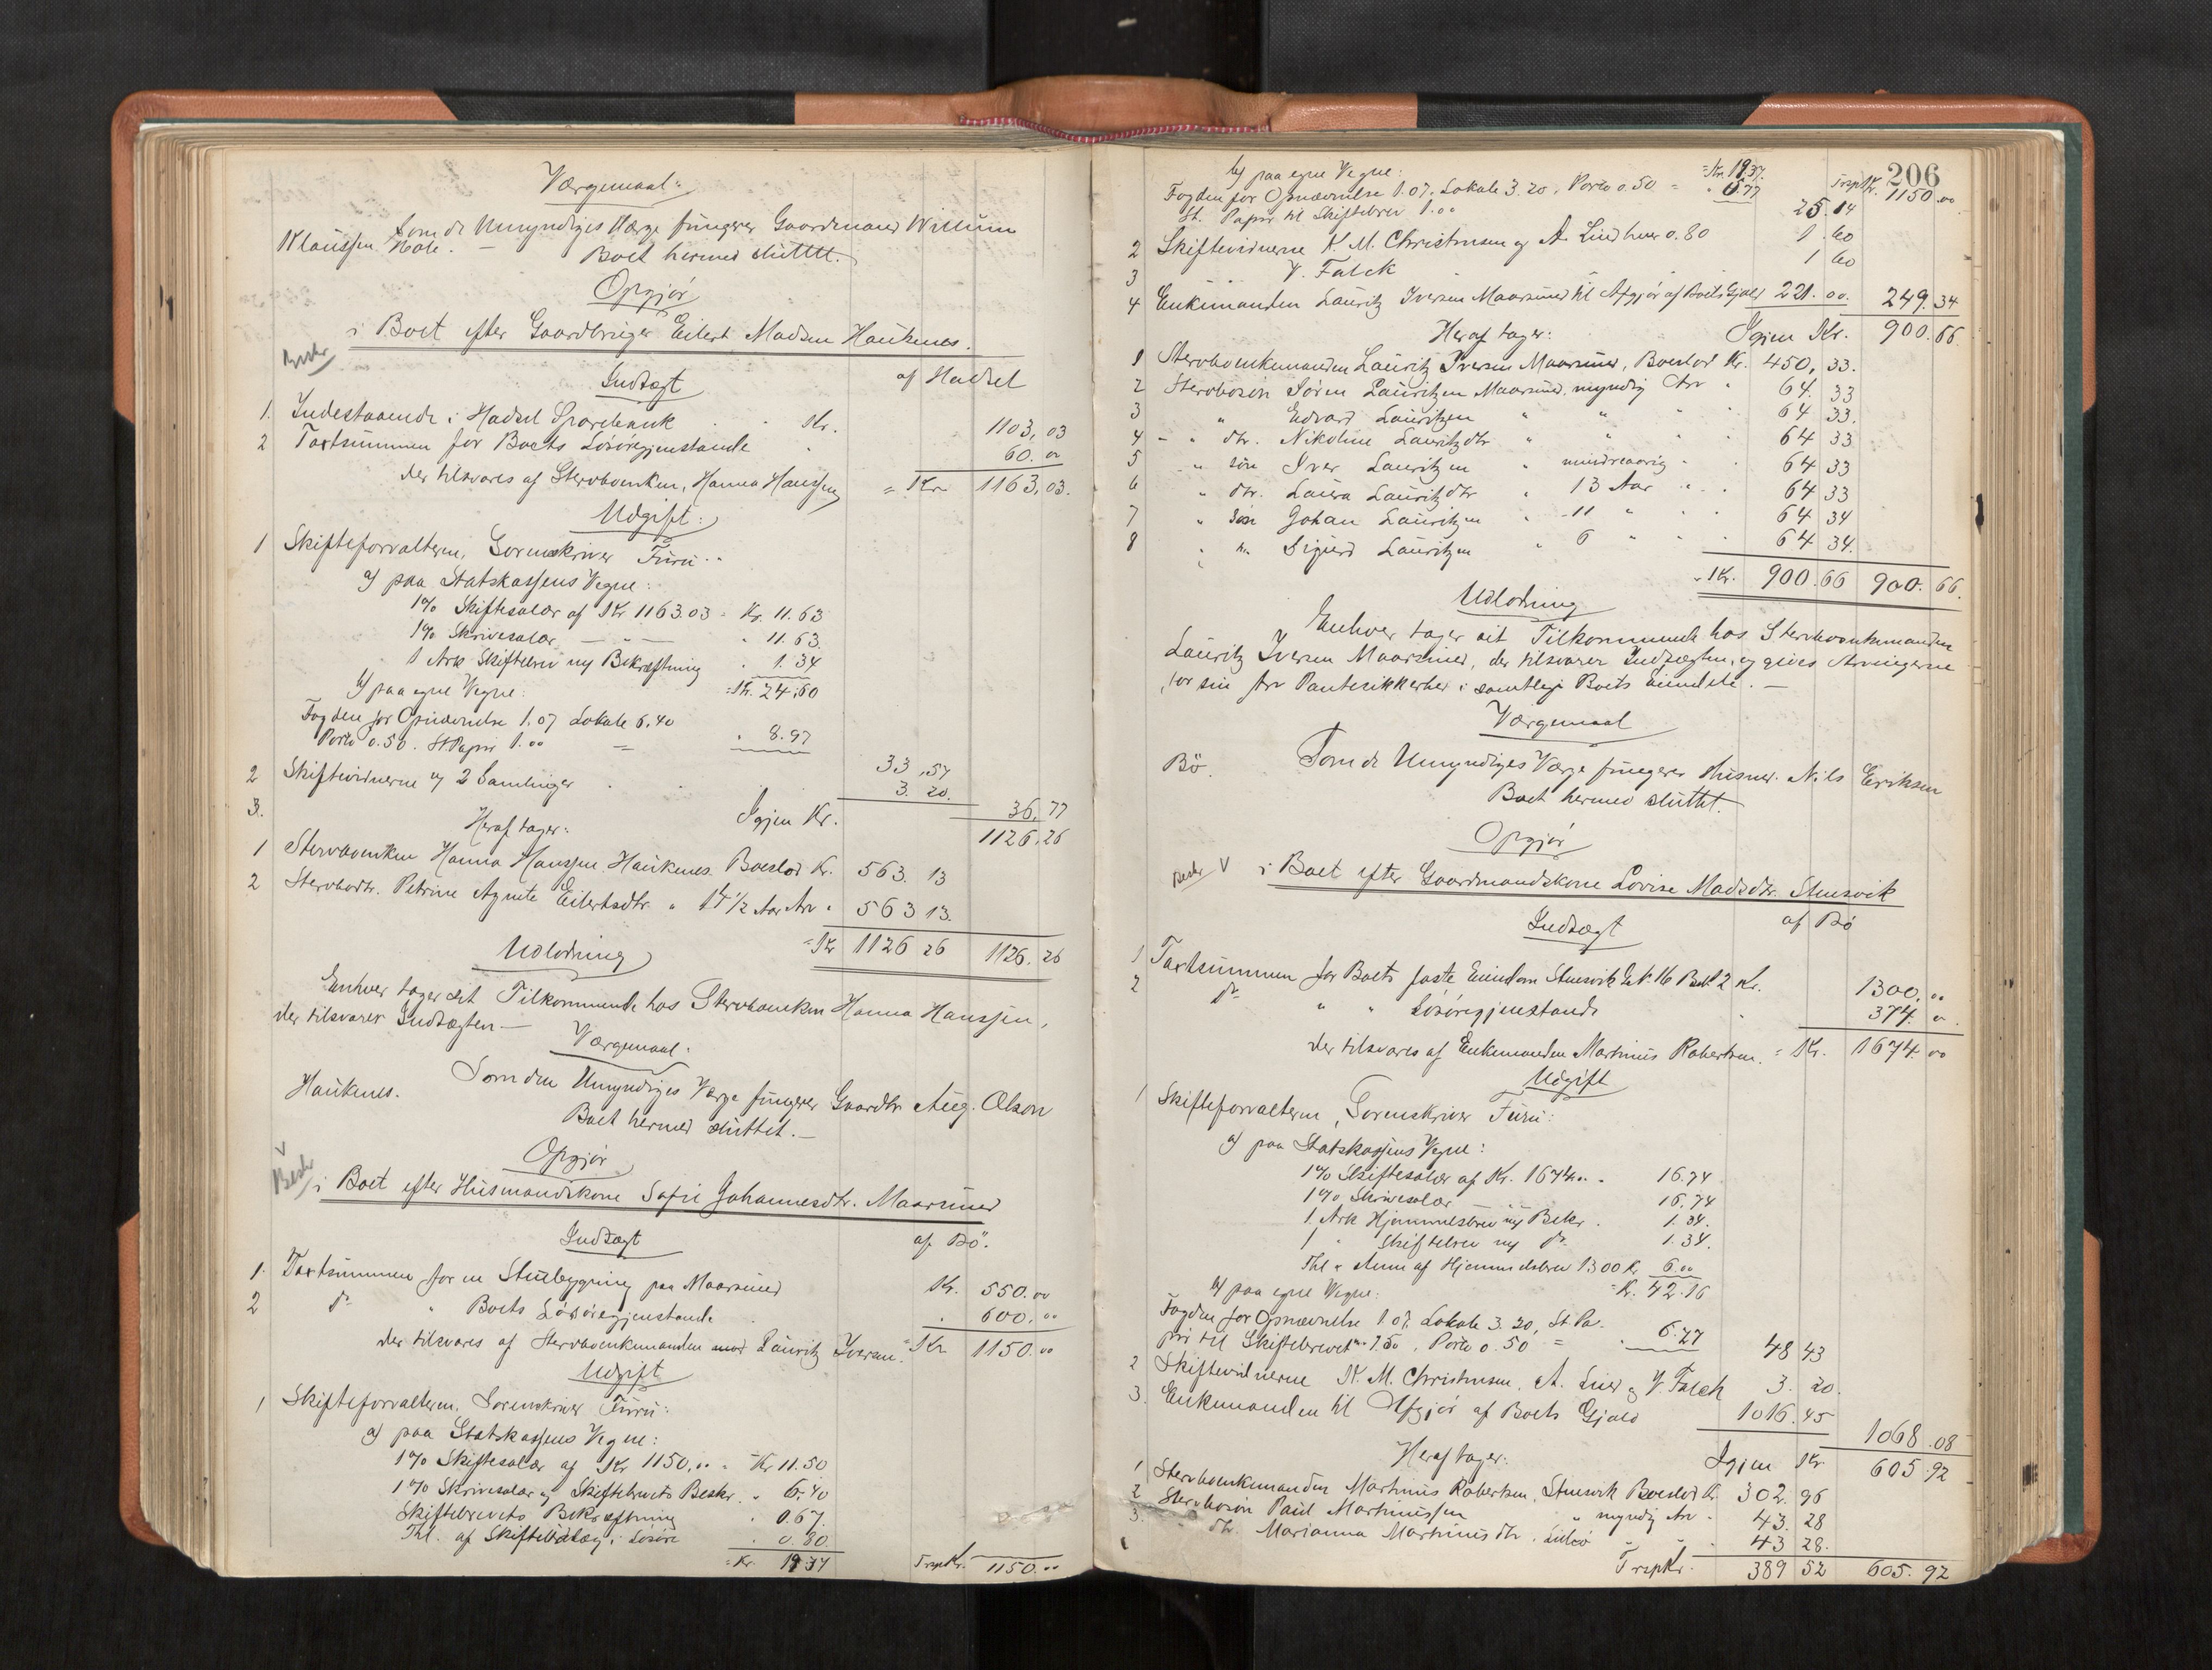 Værgemaal:
Som de Umyndiges Værge fungerer Gaardmand Willum
Klaussen Hole. —
Boet hermed sluttet.
Opgjør
i Boet efter Gaardbruger Eilert Madsen Haukenes.
Indtægt
af Hadsel
1. Indestaaende i Hadsel Sparebank Kr. 1103,03
2 Taxtsummen for Boets Løsøregjenstande " 60.00
der tilsvares af Stervboenken, Hanna Hanssen = Kr 1163,03.
Udgift:
1 Skifteforvalteren, Sorenskriver Furu:
a) paa Statskassens Vegne:
1% Skiftesalær af Kr 1163.03 = Kr. 11.63
1% Skriversalær — " — " 11.63.
1 Ark Skiftebrev og Bekræftning " 1.34
= Kr. 24.60
b) paa egne Vegne:
Fogden for Opnævnelse 1.07 Lokale 6.40
Porto 0.50. St Papir 1.00 = " 8.97
33,57
2 Skiftevidnerne og 2 Samlinger 3.20.
3. 36,77
Igjen Kr. 1126,26
Heraf tager:
1 Stervboenken Hanna Hanssen Haukenes Boeslod Kr. 563.13
2 Stervbodtr. Petrine Agnete Eilertsdtr. " 14 1/2 Aar Arv " 563 13.
= Kr 1126 26 1126.26
Udlodning
Enhver tager sit Tilkommende hos Stervboenken Hanna Hanssen,
der tilsvarer Indtægten —
Værgemaal:
Som den Umyndiges Værge fungerer Gaardbr Aug. Olson
Haukenes.
Boet hermed sluttet. —
Opgjør
i Boet efter Husmandskone Sofie Johannesdtr. Maarsund
Indtægt
af Bö.
1. Taxtsummen for en Stuebygning paa Maarsund Kr. 550.00
2 do " Boets Løsøregjenstande " 600.00
der tilsvares af Stervboenkemanden Lauritz Iversen = Kr 1150.00
Udgift
1 Skifteforvalteren, Sorenskriver Furu:
a) paa Statskassens Vegne:
1% Skiftesalær af Kr 1150,00 = Kr 11.50
1% Skriversalær og Skiftebrevets Beskr. " 6.40
Skiftebrevets Bekræftning " 0.67.
Thl. af Skifteudlæg i Løsøre " 0.80
= Kr. 19 37
Trsp Kr. 1150.00
206
Trsp Kr. 1150.00
b) paa egne Vegne: = Kr. 19 37.
Fogden for Opnævnelse 1.07, Lokale 3.20, Porto 0.50 = " 5.77
St. Papir til Skiftebrev 1.00 25.14
2 Skiftevidnerne N. M. Christensen og A. Lind hver 0.80 1.60
3 V. Falck 1 60
4 Enkemanden Lauritz Iversen Maarsund til Afgjør af Boets Gjæld 221.00. 249.34
Igjen Kr. 900.66
Heraf tager:
1 Stervboenkemanden Lauritz Iversen Maarsund, Boeslod Kr. 450,33.
2 Stervbosøn Søren Lauritzen Maarsund, myndig Arv " 64.33
3 " Edvard Lauritzen " " " 64 33.
4 - " dtr. Nikoline Lauritzdtr " " " 64 33
5 " søn Iver Lauritzen " mindreaarig " 64 33
6 " dtr. Laura Lauritzdtr " 13 Aar " 64 33
7 " søn Johan Lauritzen " 11 " " 64 34
8 " " Sigurd Lauritzen " 6 " " 64 34.
" Kr. 900.66 900.66.
Udlodning
Enhver tager sit Tilkommende hos Stervboenkemanden
Lauritz Iversen Maarsund, der tilsvarer Indtægten, og gives Arvingerne
for sin Arv Panterikkerhed i samtlige Boets Eiendele. —
Værgemaal
Som de Umyndiges Værge fungerer Husmd. Nils Eriksen
Bö.
Boet hermed sluttet.
Opgjør
i Boet efter Gaardmandskone Lovise Madsdtr. Stensvik
Indtægt
af Bö
1 Taxtsummen for Boets faste Eiendom Stensvik G. No. 16 B. No 2 Kr. 1300.00
2 do " " Løsøregjenstande 374.00
der tilsvares af Enkemanden Martinus Robertsen. = Kr. 1674.00
Udgift
1 Skifteforvalteren, Sorenskriver Furu:
a) paa Statskassens Vegne:
1% Skiftesalær af Kr. 1674.00 " 16.74
1% Skriversalær — " — 16.74
1. Ark Hjemmelsbrev og Bekr. " 1.34.
1 " Skiftebrev og do 1.34.
Thl. " Anm af Hjemmelsbrev 1300 Kr 6.00
= Kr. 42.16
b) paa egne Vegne:
Fogden for Opnævnelse 1.07, Lokale 3.20, St Pa-
pir til Skiftebrevet m. 1.50, Porto 0.50 = " 6.27 48 43
2 Skiftevidnerne N. M. Christensen, A. Lind og V. Falck 3.20.
3. Enkemanden til Afgjør af Boets Gjæld 1016.45
1068.08
Igjen Kr 605.92
Heraf tager:
1 Stervboenkemanden Martinus Robertsen, Stensvik Boeslod Kr. 302.96
2 Stervbosøn Paul Martinussen " myndig Arv " 43.28
3. " dtr. Marianna Martinusdtr. " 43 28.
Trsp Kr. 389 52 605.92